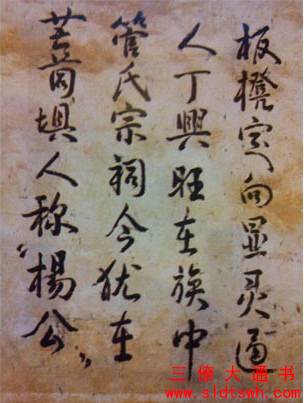 板櫈穴向显灵通
人丁興旺在族中
管氏宗祠今犹在
茼埧人称“楊公”
三僚大通书
www.sldtswh.com